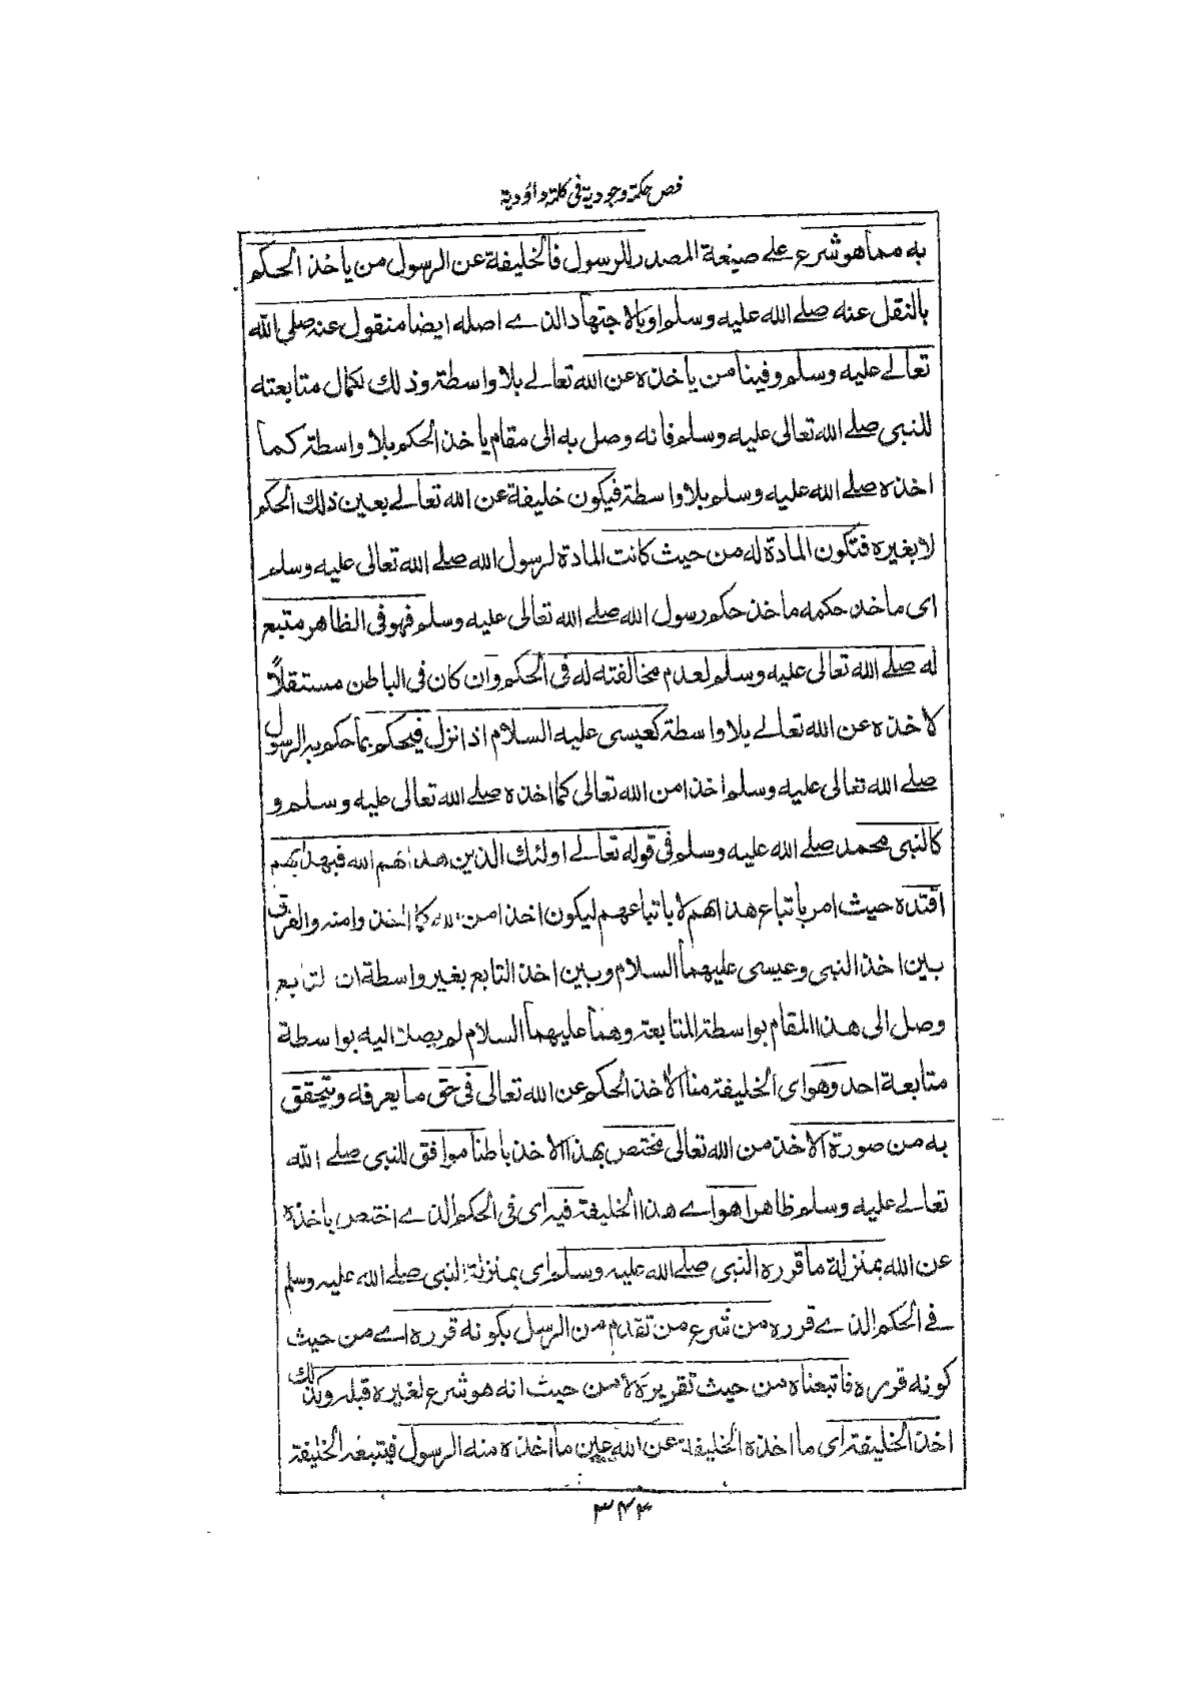 فص حكمة وجودية في كلمة داؤدية
به مما هو شرع على صيغة المصدر للرسول فالخليفة عن الرسول من ياخذ الحكم
بالنقل عنه صلے الله عليه وسلم او بالاجتهاد الذے اصله ايضا منقول عنه صلى الله
تعالے عليه وسلم وفينا من ياخذه عن الله تعالے بلا واسطة وذلك لكمال متابعته
للنبى صلے الله تعالى عليه وسلم فانه وصل به الى مقام ياخذ الحكم بلا واسطة كما
اخذه صلے الله عليه وسلم بلا واسطة فيكون خليفة عن الله تعالے بعين ذلك الحكم
لا بغيره فتكون المادة له من حيث كانت المادة لرسول الله صلے الله تعالى عليه وسلم
اى ماخذ حكمه ماخذ حكم رسول الله صلے الله تعالى عليه وسلم فهو فى الظاهر متبع
له صلے الله تعالى عليه وسلم لعدم مخالفته له فى الحكم وان كان فى الباطن مستقلاً
لاخذه عن الله تعالے بلا واسطة كعيسى عليه السلام اذا نزل فيحكم بما حكم به الرسول
صلے الله تعالى عليه وسلم اخذا من الله تعالى كما اخذه صلے الله تعالى عليه وسلم و
كالنبى محمد صلے الله عليه وسلم فى قوله تعالے اولئك الذين هداهم الله فبهداهم
اقتده حيث امر باتباع هداهم لا باتباعهم ليكون اخذا من الله كما اخذوا منه والفرق
بين اخذ النبى وعيسى عليهما السلام وبين اخذ التابع بغير واسطة ان التابع
وصل الى هذا المقام بواسطة المتابعة وهما عليهما السلام لم يصلا اليه بواسطة
متابعة احد وهو اى الخليفة منا الآخذ الحكم عن الله تعالى فى حق ما يعرفه ويتحقق
به من صورة الاخذ من الله تعالى مختص بهذا الاخذ باطنا موافق للنبى صلے الله
تعالے عليه وسلم ظاهرا هو اے هذا الخليفة فيه اى فى الحكم الذے اختص باخذه
عن الله بمنزلة ما قرره النبى صلے الله عليه وسلم اى بمنزلة النبى صلے الله عليه وسلم
فے الحكم الذے قرره من شرع من تقدم من الرسل بكونه قرره اے من حيث
كونه قرره فاتبعناه من حيث تقريره لا من حيث انه هو شرع لغيره قبله وكذلك
اخذ الخليفة اى ما اخذه الخليفة عن الله عين ما اخذه منه الرسول فيتبعه الخليفة
۳۴۳